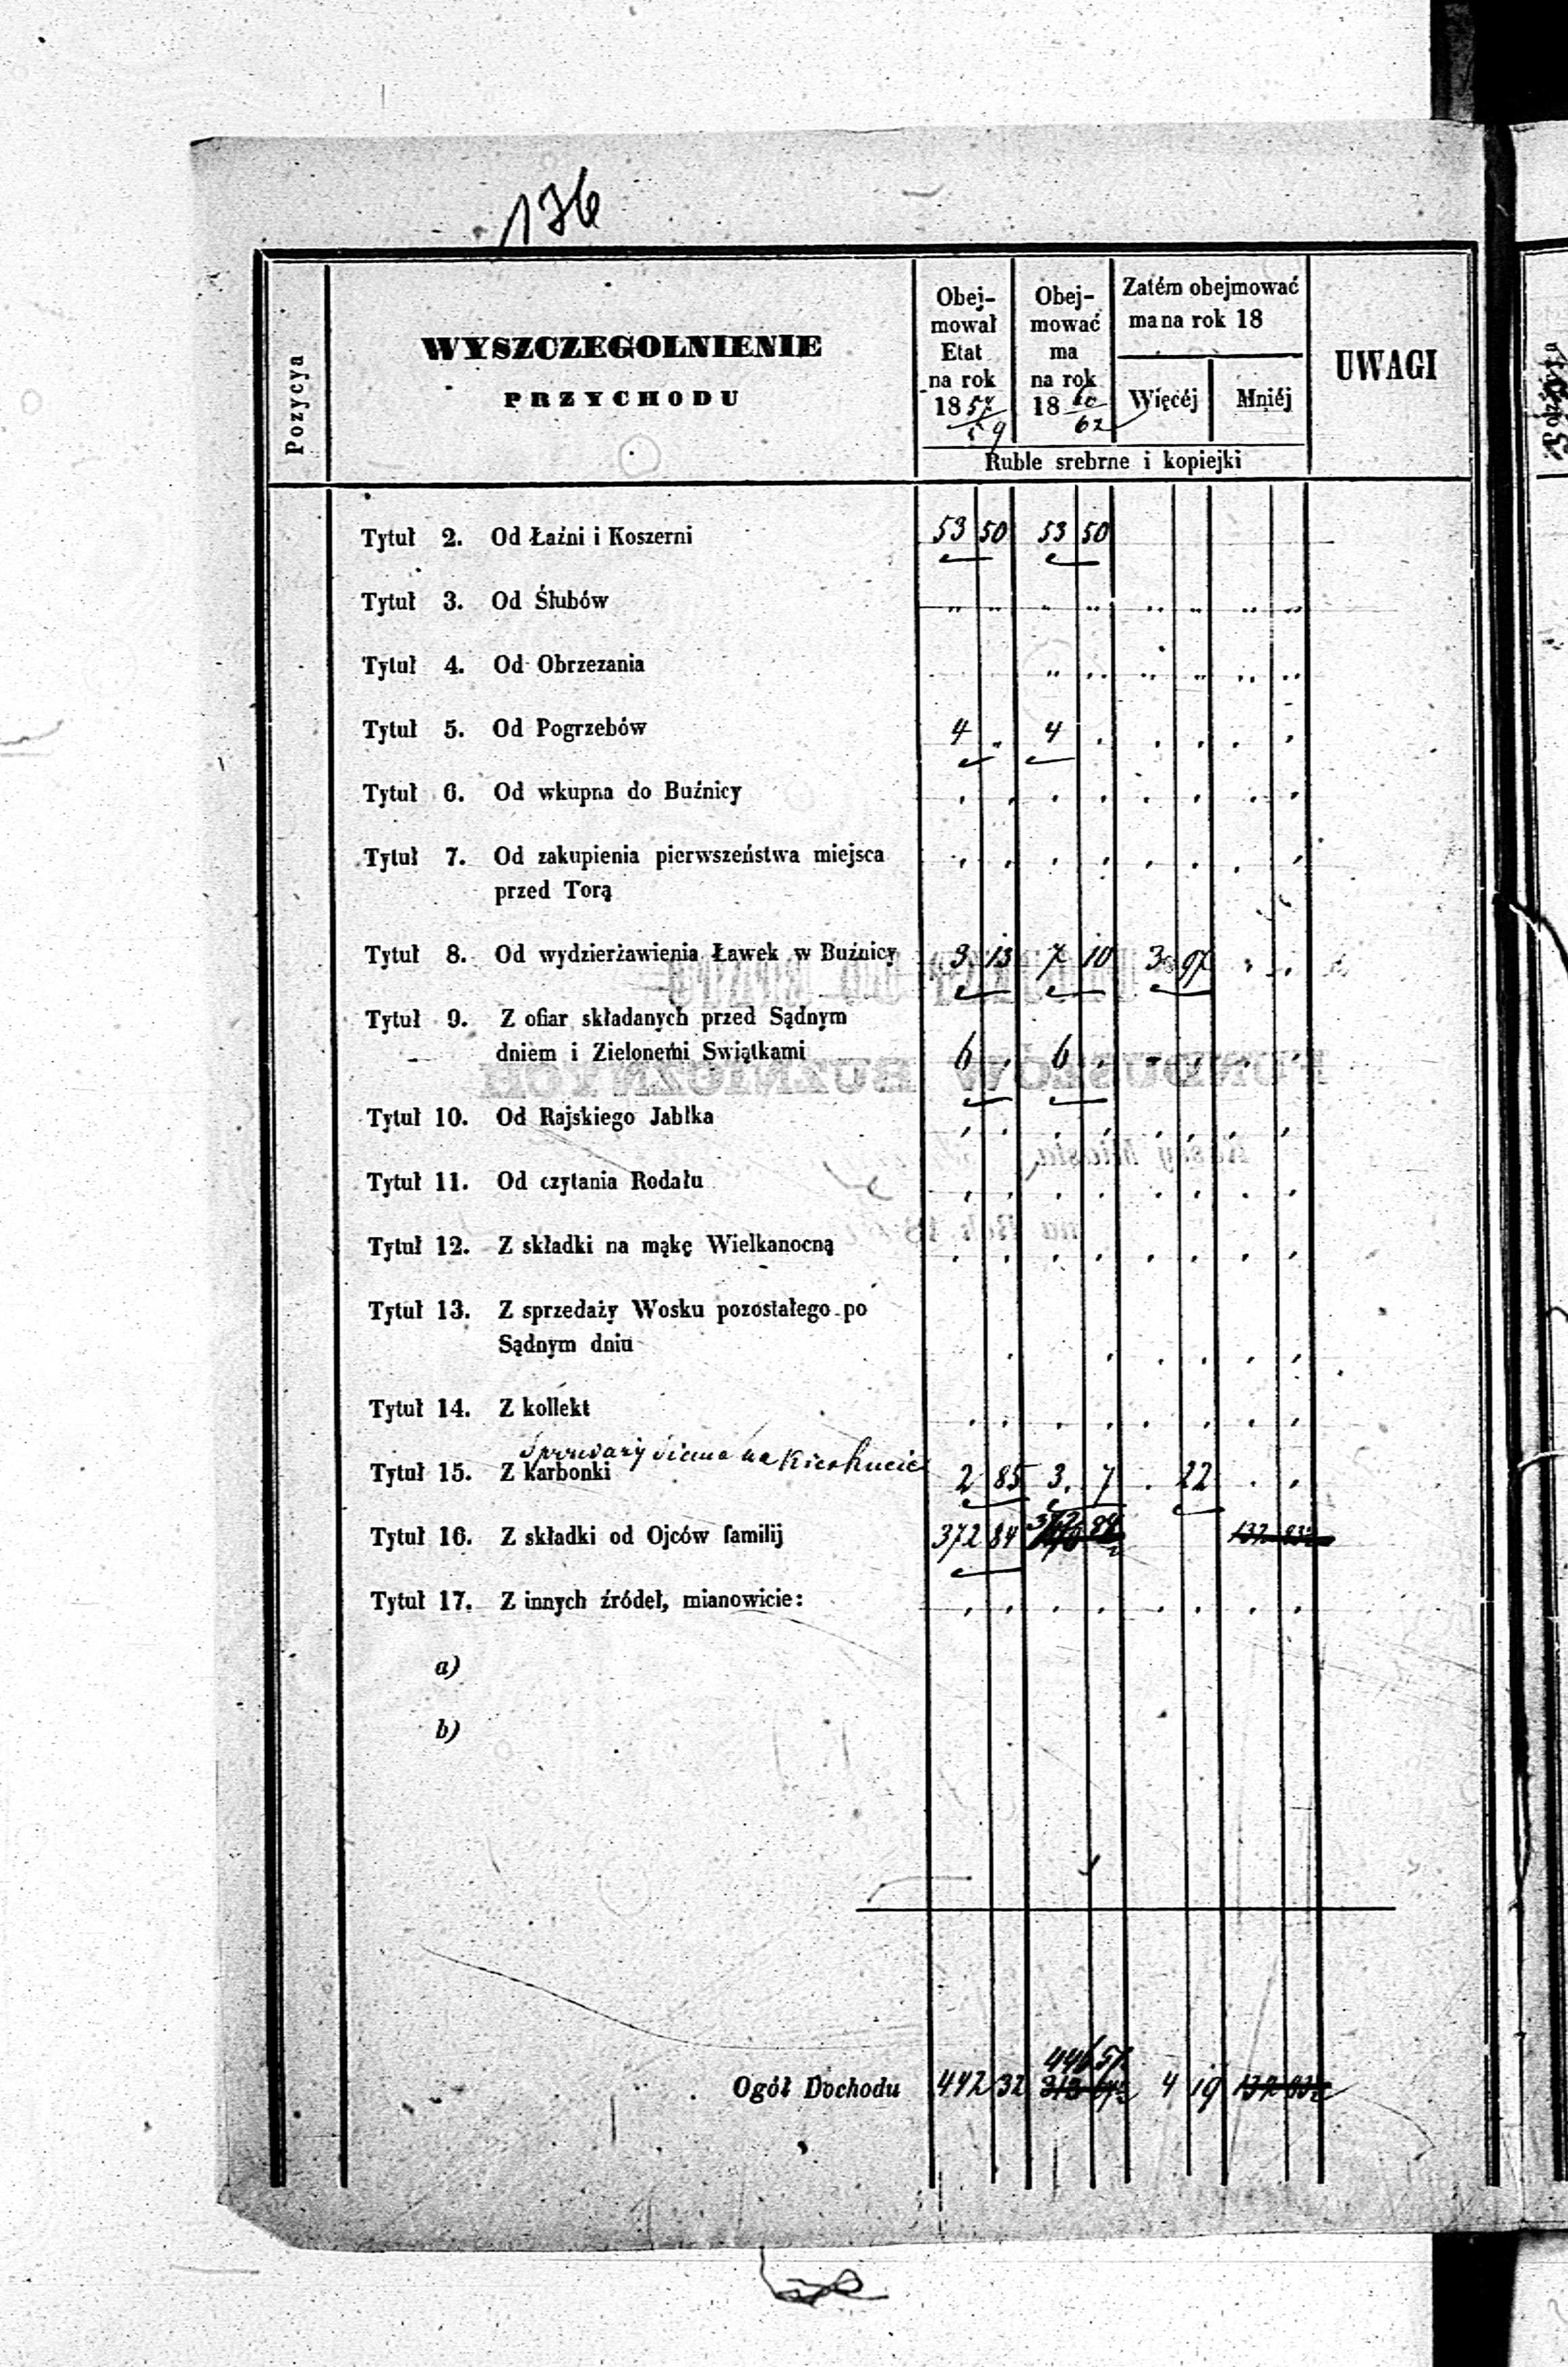 136
Pozycya
WYSZCZEGOLNIENIE
PRZYCHODU
Obej-
mował
Etat
na rok
18 57/59
Obej-
mować
ma
na rok
18 60/62
Zatém obejmować
ma na rok 18
Więcéj
Mniéj
Ruble srebrne i kopiejki
UWAGI
Tytuł 2. Od Łaźni i Koszerni 53 50 53 50
Tytuł 3. Od Ślubów
Tytuł 4. Od Obrzezania
Tytuł 5. Od Pogrzebów 4 4
Tytuł 6. Od wkupna do Buźnicy
Tytuł 7. Od zakupienia pierwszeństwa miejsca
przed Torą
Tytuł 8. Od wydzierżawienia Ławek w Buźnicy 3 13 7 10 3 97
Tytuł 9. Z ofiar składanych przed Sądnym
dniem i Zielonemi Swiątkami 6 6
Tytuł 10. Od Rajskiego Jabłka
Tytuł 11. Od czytania Rodału
Tytuł 12. Z składki na mąkę Wielkanocną
Tytuł 13. Z sprzedaży Wosku pozostałego po
Sądnym dniu
Tytuł 14. Z kollekt
siana na Kierkucie
Tytuł 15. Z karbonki 2 85 3 7 22
Tytuł 16. Z składki od Ojców familij 372 84 372 84
Tytuł 17. Z innych źródeł, mianowicie:
a)
b)
Ogół Dochodu 442 32 446 51 4 19